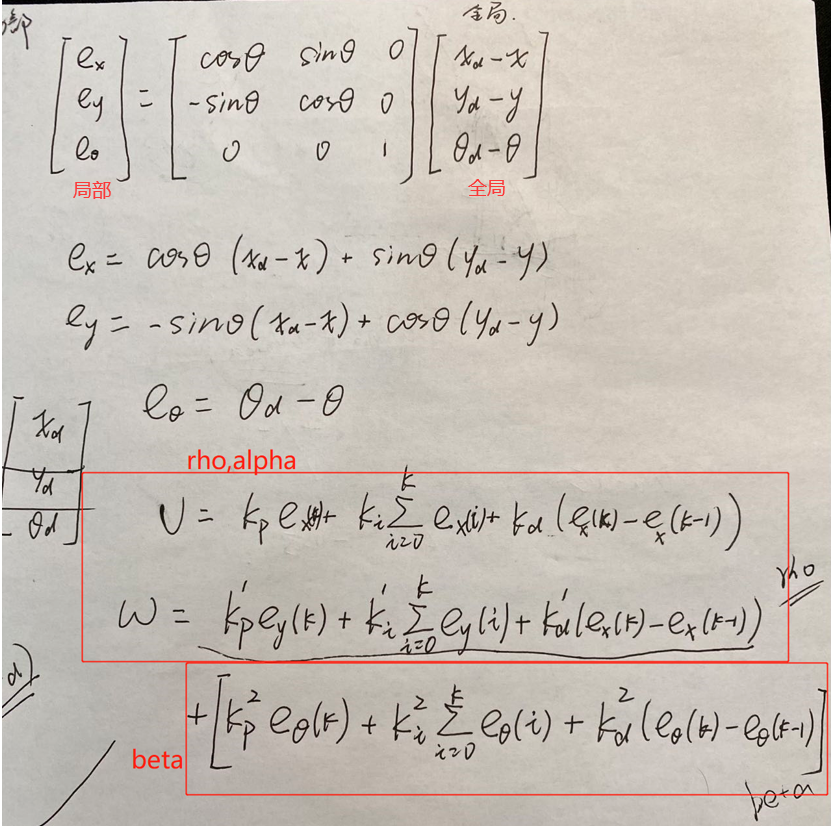 部 全局.
[e_x e_y e_θ] = [cosθ sinθ 0; -sinθ cosθ 0; 0 0 1] [x_d-x; y_d-y; θ_d-θ]
局部 全局
e_x = cosθ (x_d-x) + sinθ (y_d-y)
e_y = -sinθ (x_d-x) + cosθ (y_d-y)
e_θ = θ_d-θ
[x_d; y_d; θ_d]
rho,alpha
v = k_p e_x(k) + k_i Σ_{i=0}^{k} e_x(i) + k_d (e_x(k)-e_x(k-1))
rho
ω = k_p' e_y(k) + k_i' Σ_{i=0}^{k} e_y(i) + k_d' (e_x(k)-e_x(k-1))
d)
+ [k_p^2 e_θ(k) + k_i^2 Σ_{i=0}^{k} e_θ(i) + k_d^2 (e_θ(k)-e_θ(k-1))]
beta
beta